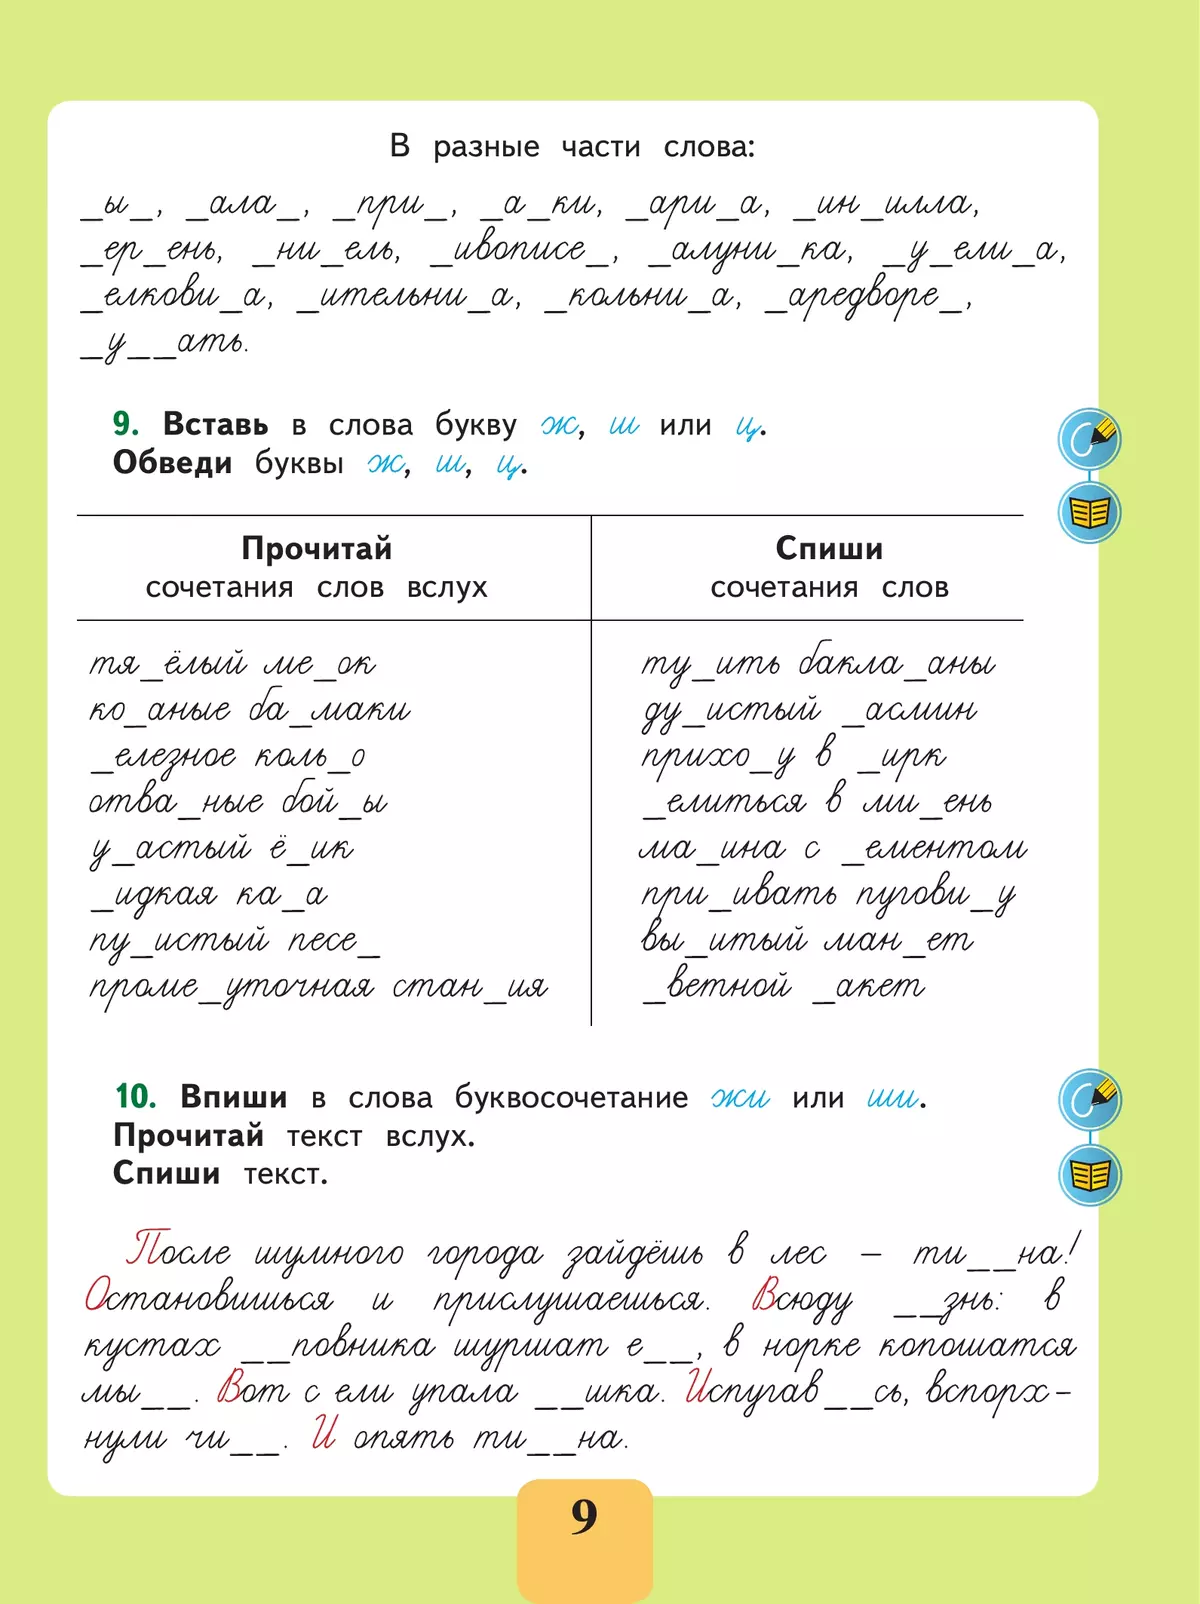 В разные части слова:
_ы_, _ала_, _при_, _а_ки, _ари_а, _ин_илла,
_ер_ень, _ни_ель, _ивописе_, _алуни_ка, _у_ели_а,
_елкови_а, _ительни_а, _кольни_а, _аредворе_,
_у__ать.
9. Вставь в слова букву ж, ш или ц.
Обведи буквы ж, ш, ц.
Прочитай
сочетания слов вслух
Спиши
сочетания слов
тя_ёлый ме_ок
ко_аные ба_маки
_елезное коль_о
отва_ные бой_ы
у_астый ё_ик
_идкая ка_а
пу_истый песе_
проме_уточная стан_ия
ту_ить бакла_аны
ду_истый _асмин
прихо_у в _ирк
_елиться в ми_ень
ма_ина с _ементом
при_ивать пугови_у
вы_итый ман_ет
_ветной _акет
10. Впиши в слова буквосочетание жи или ши.
Прочитай текст вслух.
Спиши текст.
После шумного города зайдёшь в лес – ти__на!
Остановишься и прислушаешься. Всюду __знь: в
кустах __повника шуршат е__, в норке копошатся
мы__. Вот с ели упала __шка. Испугав__сь, вспорх-
нули чи__. И опять ти__на.
9